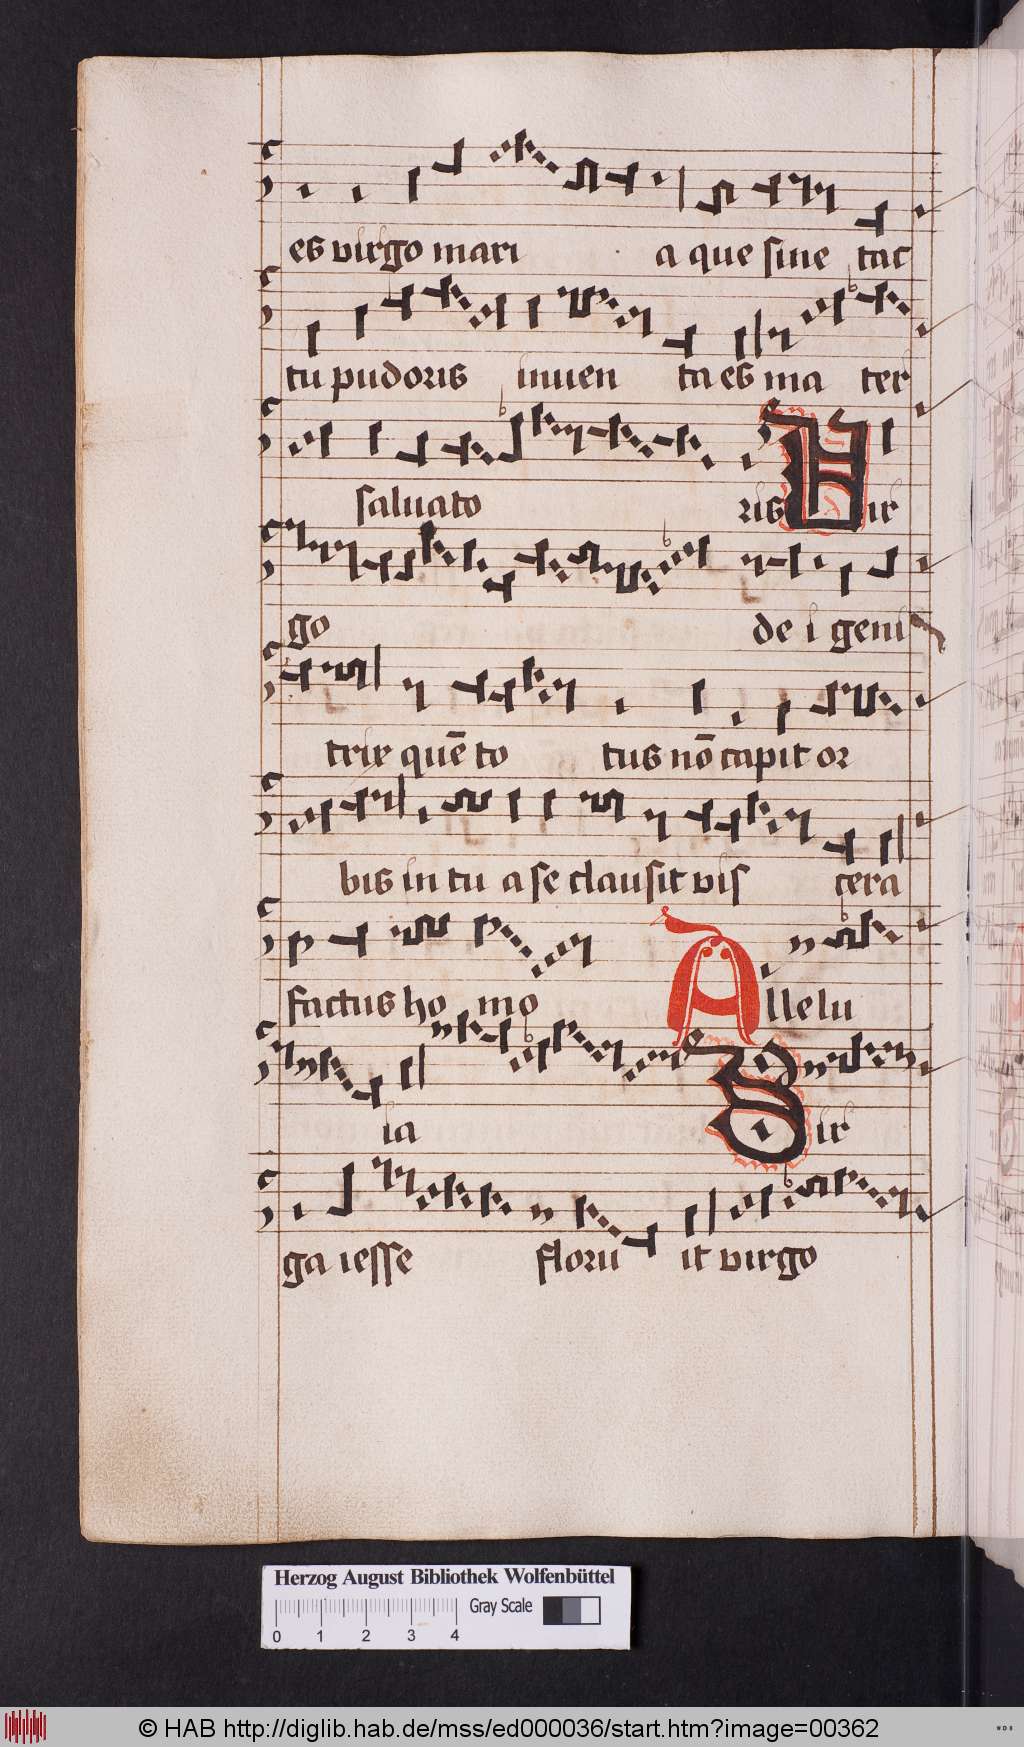 es virgo mari a que sine tac
tu pudoris inuen ta es ma ter
saluato ris Vir
go de i geni
trix quē to tus nō capit or
bis in tu a se clausit vis cera
factus ho mo Allelu
ia Vir
ga iesse floru it virgo
Herzog August Bibliothek Wolfenbüttel
Gray Scale
0 1 2 3 4
© HAB http://diglib.hab.de/mss/ed000036/start.htm?image=00362